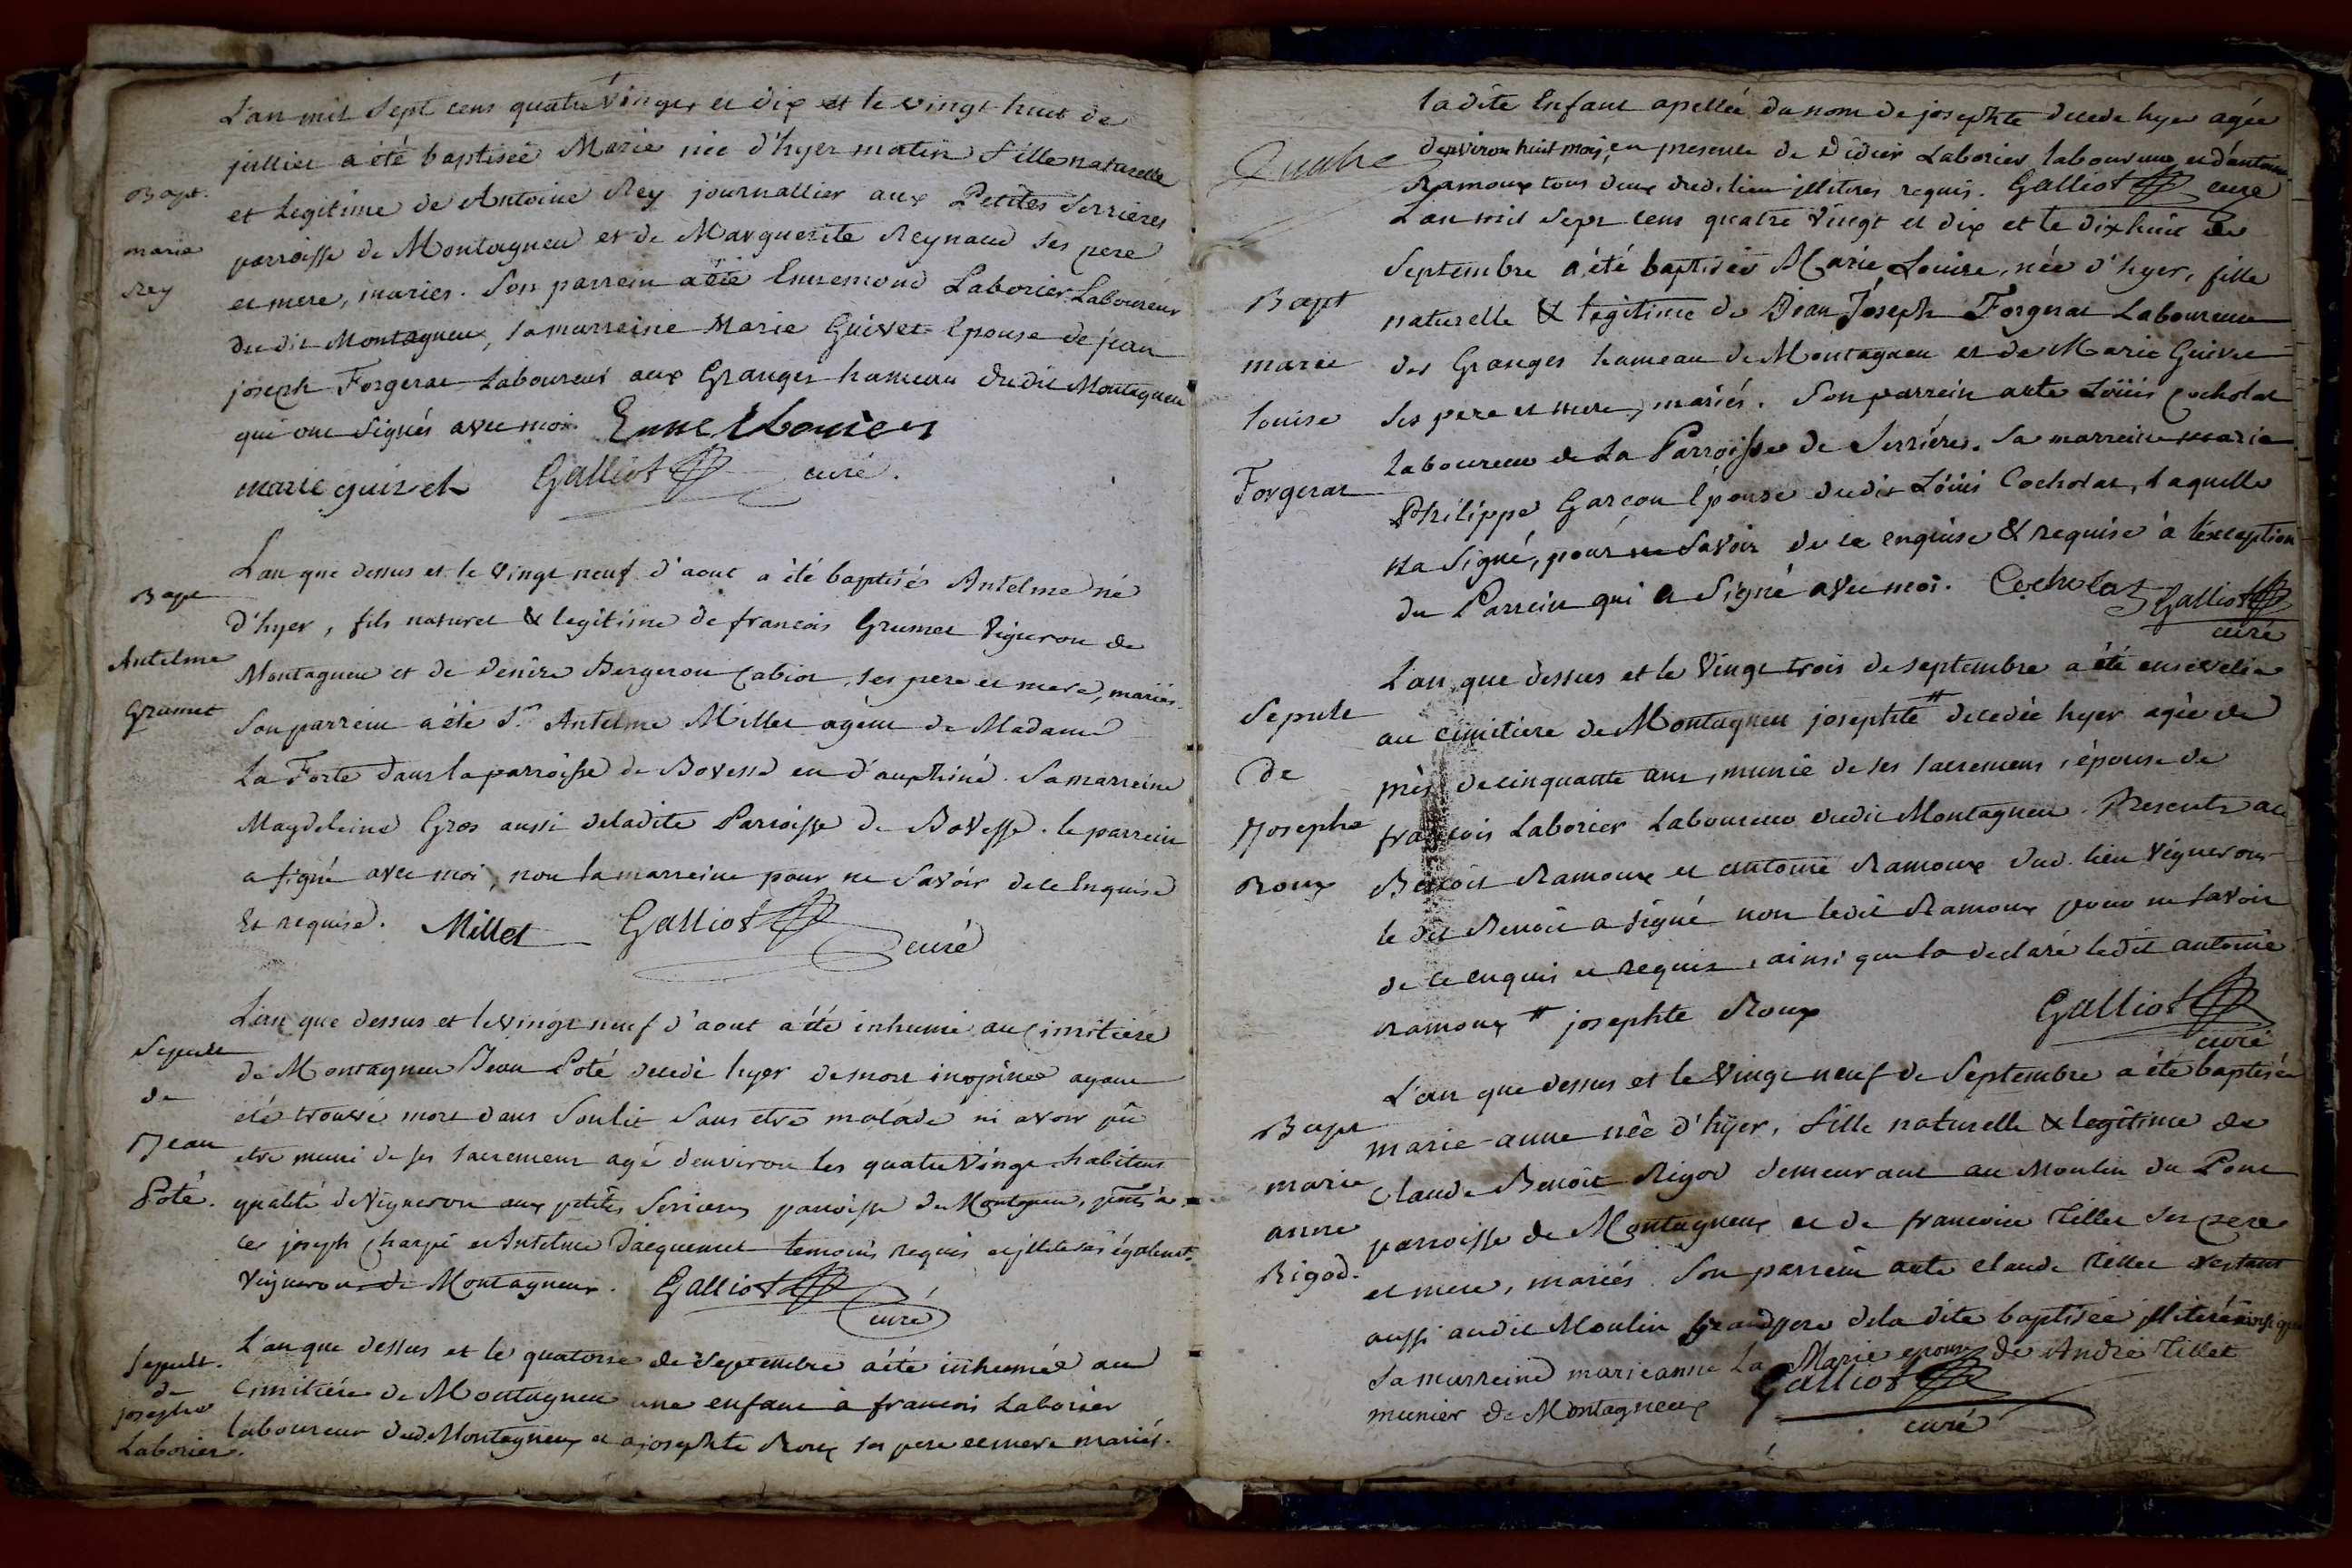 L'an mil sept cens quatre vingt et dix et le vingt huit de
juillier a été baptiseé Marie née d'hyer matin fille naturelle
Bapt.
et legitime de Antoine Rey journallier aux Petites Serrieres
marie
parroisse de Montagneu et de Marguerite Reynaud ses pere
Rey
et mere, mariés. Son parrein a été Ennemond Laborier Laboureur
du dit Montagneu, sa marreine Marie Guivet Epouse de jean
joseph Forgerat Laboureur aux Granges hameau dudit Montagneu
qui ont signés avec moi.
marie guivet Galliot curé.
Bapt
L'an que dessus et le vingt neuf d'aout a été baptisés Antelme né
d'hyer, fils naturel & legitime de francois Grumet Vigneron de
Antelme
Montagneu et de Denise Bergeron Cabiot, ses pere et mere, mariés.
Grumet
Son parrein a été Sr Antelme Millet agent de Madame
La Forte dans la parroisse de Bovesse en d'auphiné. Sa marreine
Magdeleine Gros aussi deladite Parroisse de Bovesse. le parrein
a signé avec moi, non la marreine pour ne savoir de ce Enquise
Et requise. Millet Galliot curé
Sepult
de
Jean
Poté.
L'an que dessus et le vingt neuf d'aout a été inhumé au Cimitiere
de Montagneu Jean Poté decedé hyer de mort inopinée ayant
été trouvé mort dans son lit sans etre malade ni avoir pû
etre muni de ses sacremens agé d'environ les quatre vingt habitant
qualité de Vigneron aux petites Serrieres parroisse de Montagneu, pnts à
ce joseph Charpé et Antelme Jacquemet temoins requis et illiterés égalemt.
Vigneron de Montagneux. Galliot curé
Sepult.
de
josephte
Laborier.
L'an que dessus et le quatorse de Septembre a été inhumée au
Cimitiére de Montagneu une enfant à francois Laborier
laboureur dud. Montagneux et a josephte Roux ses pere et mere mariés.
ladite Enfant apellée du nom de josephte decede hyer agée
Quatre
d'environ huit mois, en presence de Didier Laborier laboureur et d'antoine
Ramoux tous deux dudi. lieu illiteres requis. Galliot curé
L'an mil sept cens quatre vingt et dix et le dixhuit de
Septembre a été baptisée Marie Louise, née d'hyer, fille
Bapt
marie
louise
Forgerat
naturelle & legitime de Jean Joseph Forgerat Laboureur
des Granges hameau de Montagneu et de Marie Guivet
ses pere et mere, mariés. Son parrein a été Loüis Cocholat
laboureur de La Parroisse de Serriéres. Sa marreine Marie
Philippe Garcon Epouse dudit Loüis Cocholat, laquelle
n'a signé, pour ne savoir de ce enquise & requise à l'exception
du Parrein qui a signé avec moi. Cocholat Galliot
curé
Sepult
de
Josephe
Roux
L'an que dessus et le vingt trois de septembre a été ensevelie
au cimitiere de Montagneu josephte # decedée hyer agée de
près de cinquante ans, munie de ses sacremens, épouse de
francois Laborier Laboureur dudit Montagneu. Presents a ce
Benoit Ramoux et antoine Ramoux dud. lieu vignerons
le dit Benoit a signé non ledit Ramoux pour ne savoir
de ce enquis et requis, ainsi que la declaré ledit antoine
Ramoux # josephte Roux Galliot
curé
Bapt
marie
anne
Rigod.
L'an que dessus et le vingt neuf de Septembre a été baptisée
marie-anne née d'hÿer, fille naturelle & legitime de
Claude Benoit Rigod demeurant au Moulin du Pont
parroisse de Montagneux et de francoise Tillet ses pere
et mere, mariés. Son parrein a été claude Tillet restant
aussi audit Moulin grandpere de la dite baptisée illiteré ainsi que
Sa marreine marieanne La Marie epouse de André Tillet
munier de Montagneux Galliot
curé